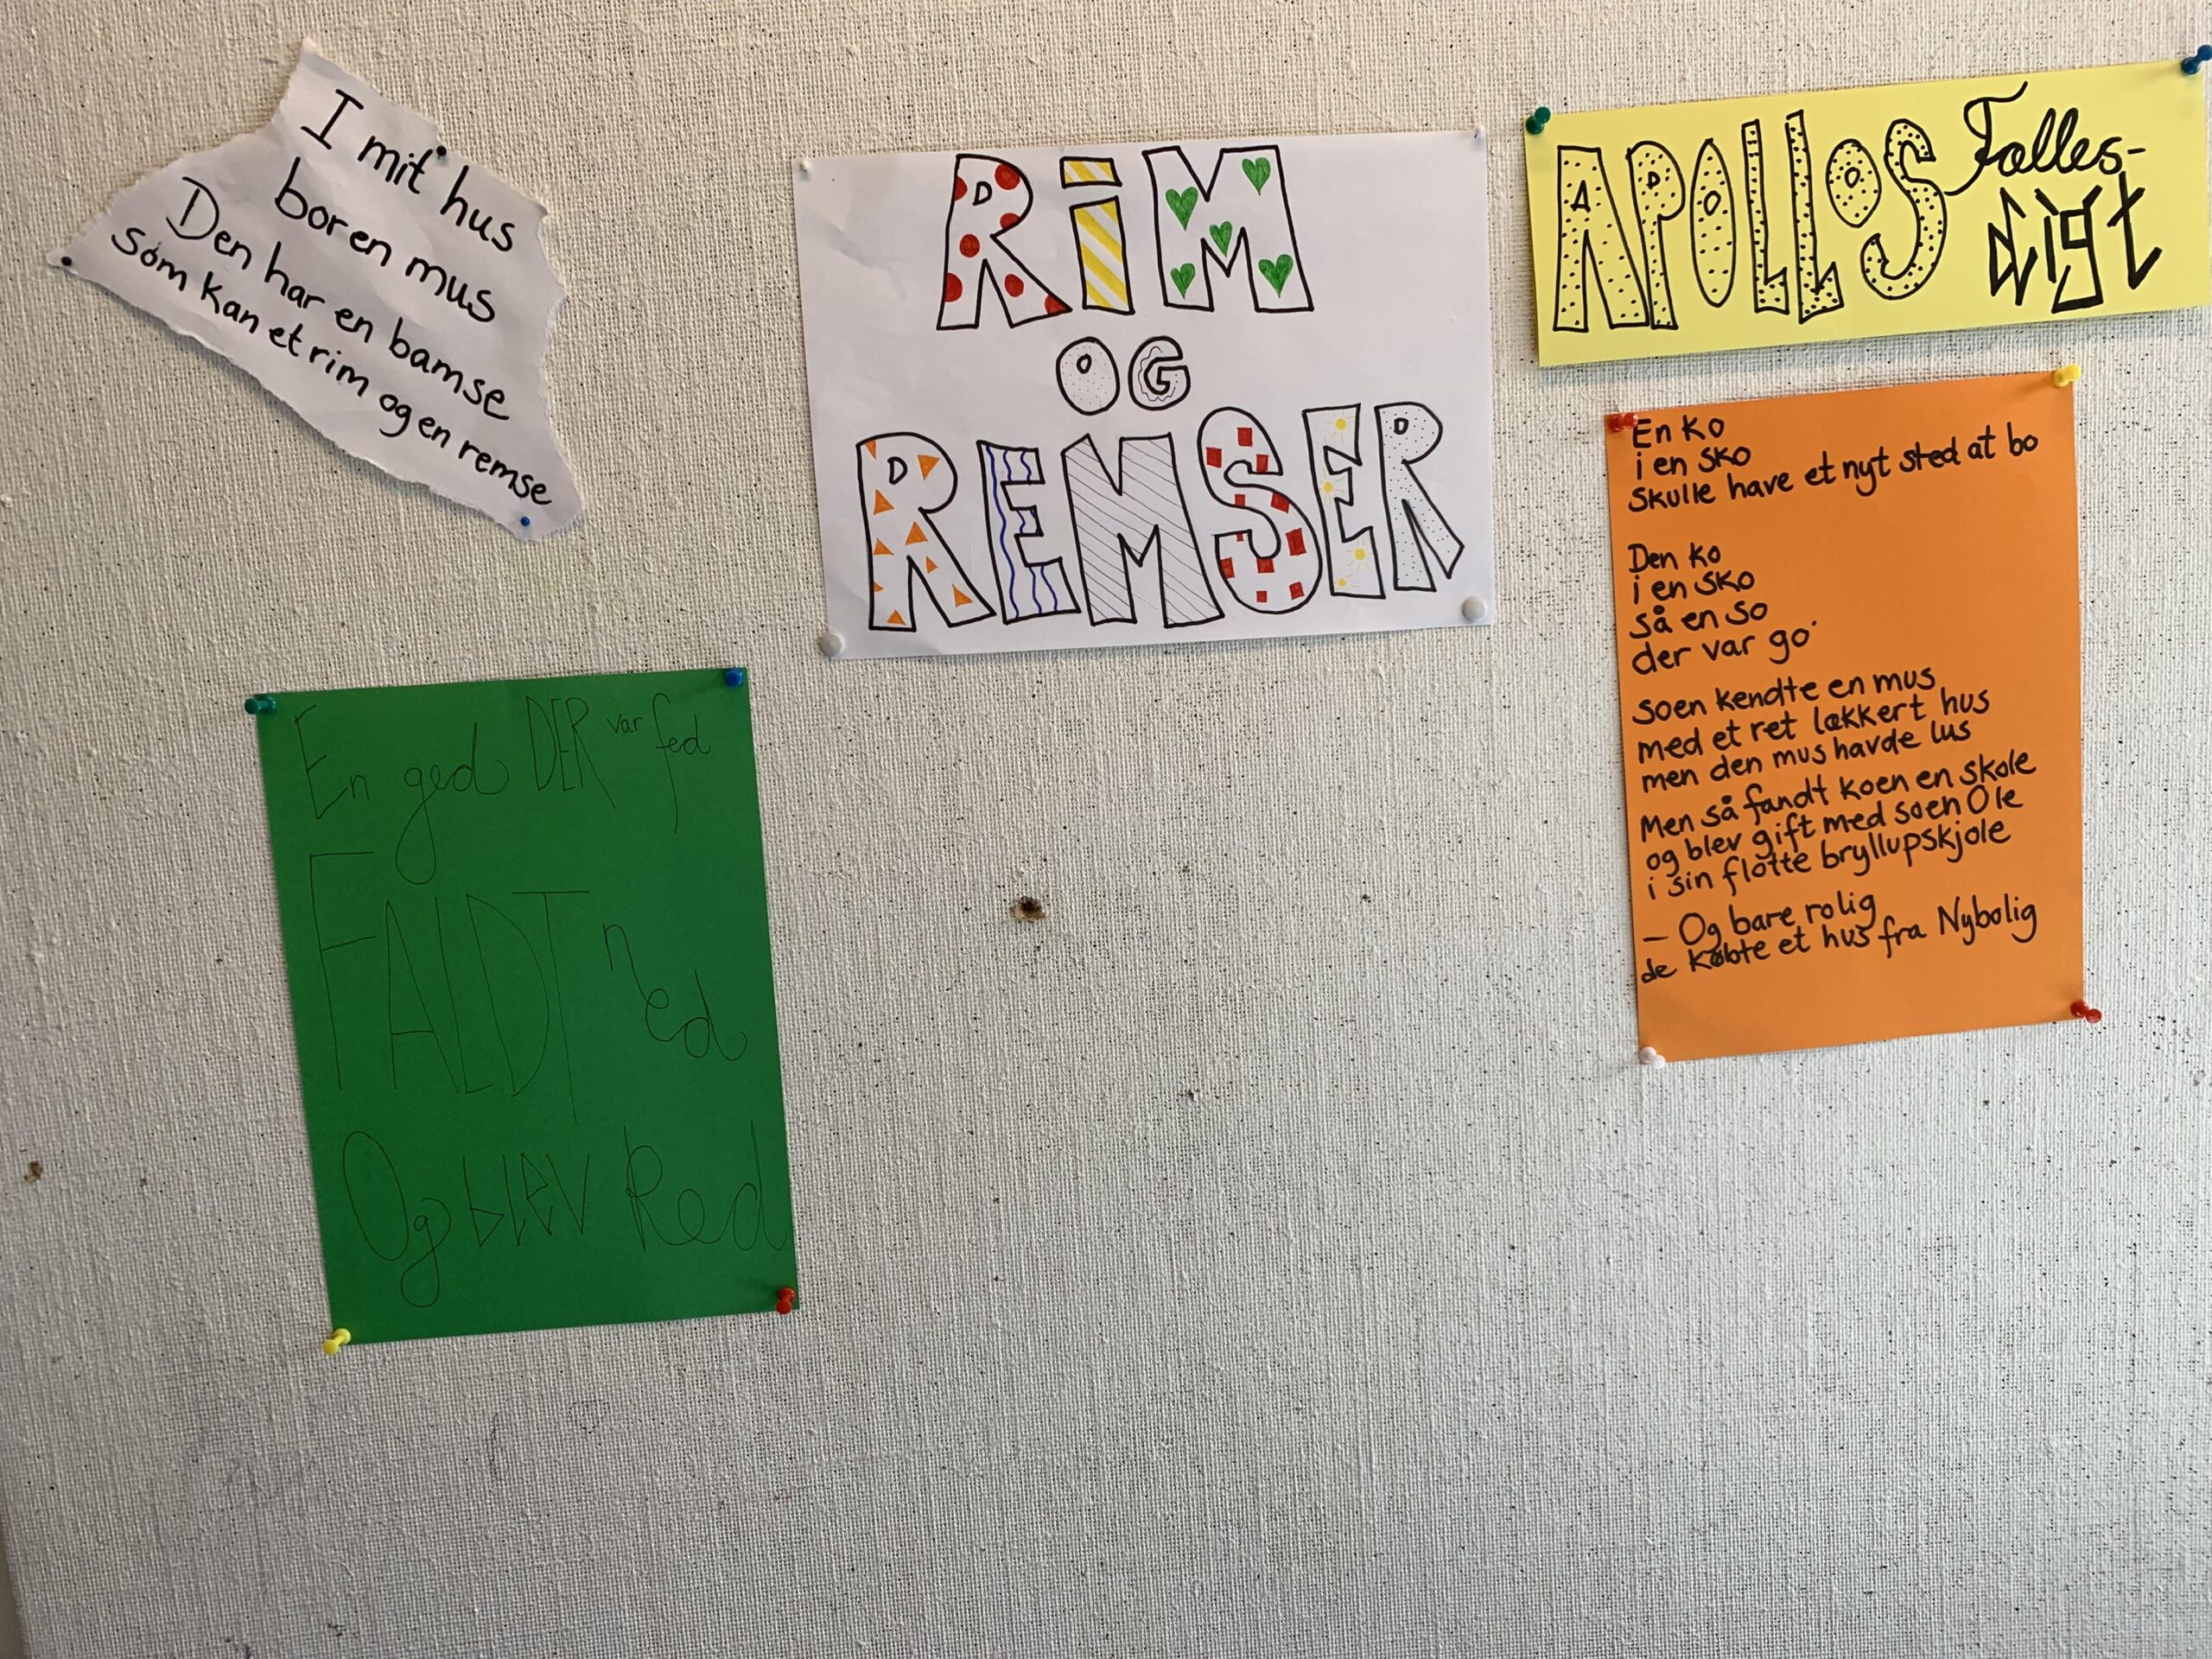 I mit hus
bor en mus
Den har en bamse
som kan et rim og en remse
RIM
OG
REMSER
APOLLOS Fælles-
digt
En ko
i en sko
skulle have et nyt sted at bo
Den ko
i en sko
så en so
der var go'
Soen kendte en mus
med et ret lækkert hus
men den mus havde lus
Men så fandt koen en skole
og blev gift med soen Ole
i sin flotte bryllupskjole
– Og bare rolig
de købte et hus fra Nybolig
En ged DER var fed
FALDT ned
Og blEV Red